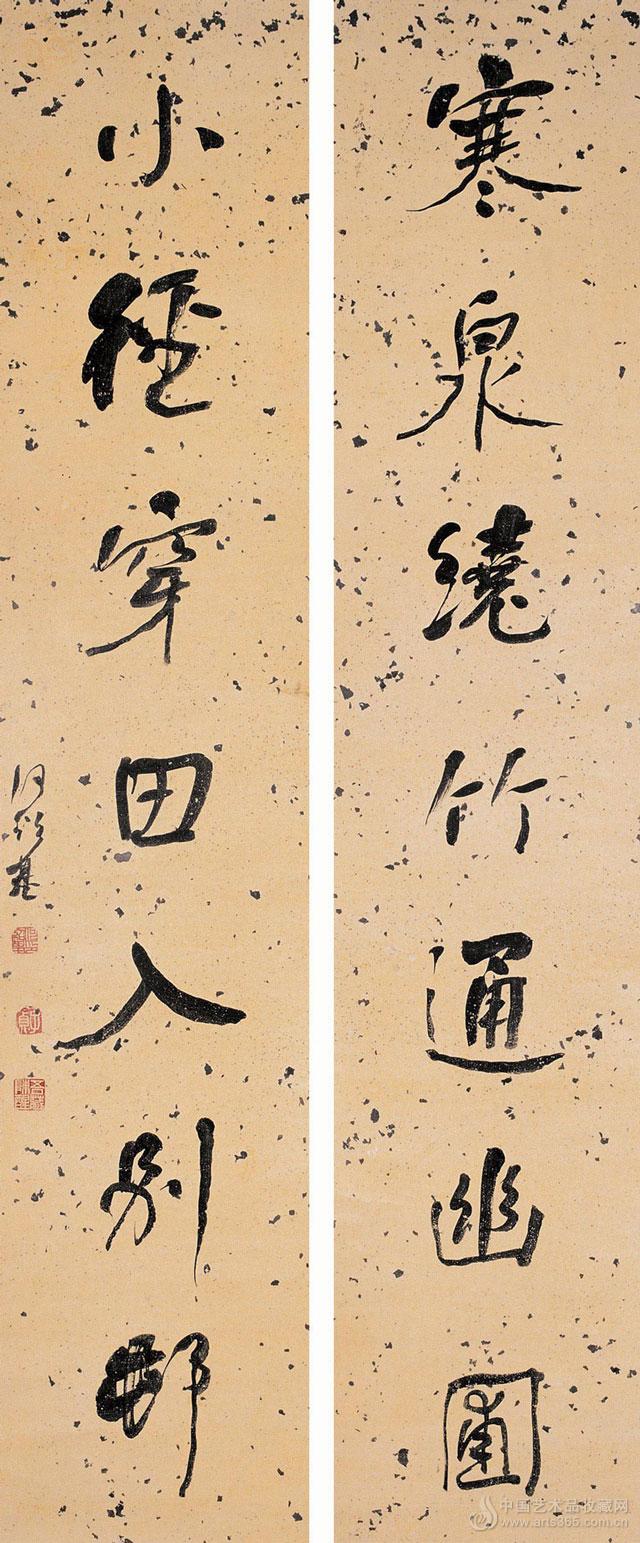 寒泉繞竹通幽圃
小徑穿田入別邨
何紹基
中国艺术品收藏网
www.arts365.com.cn